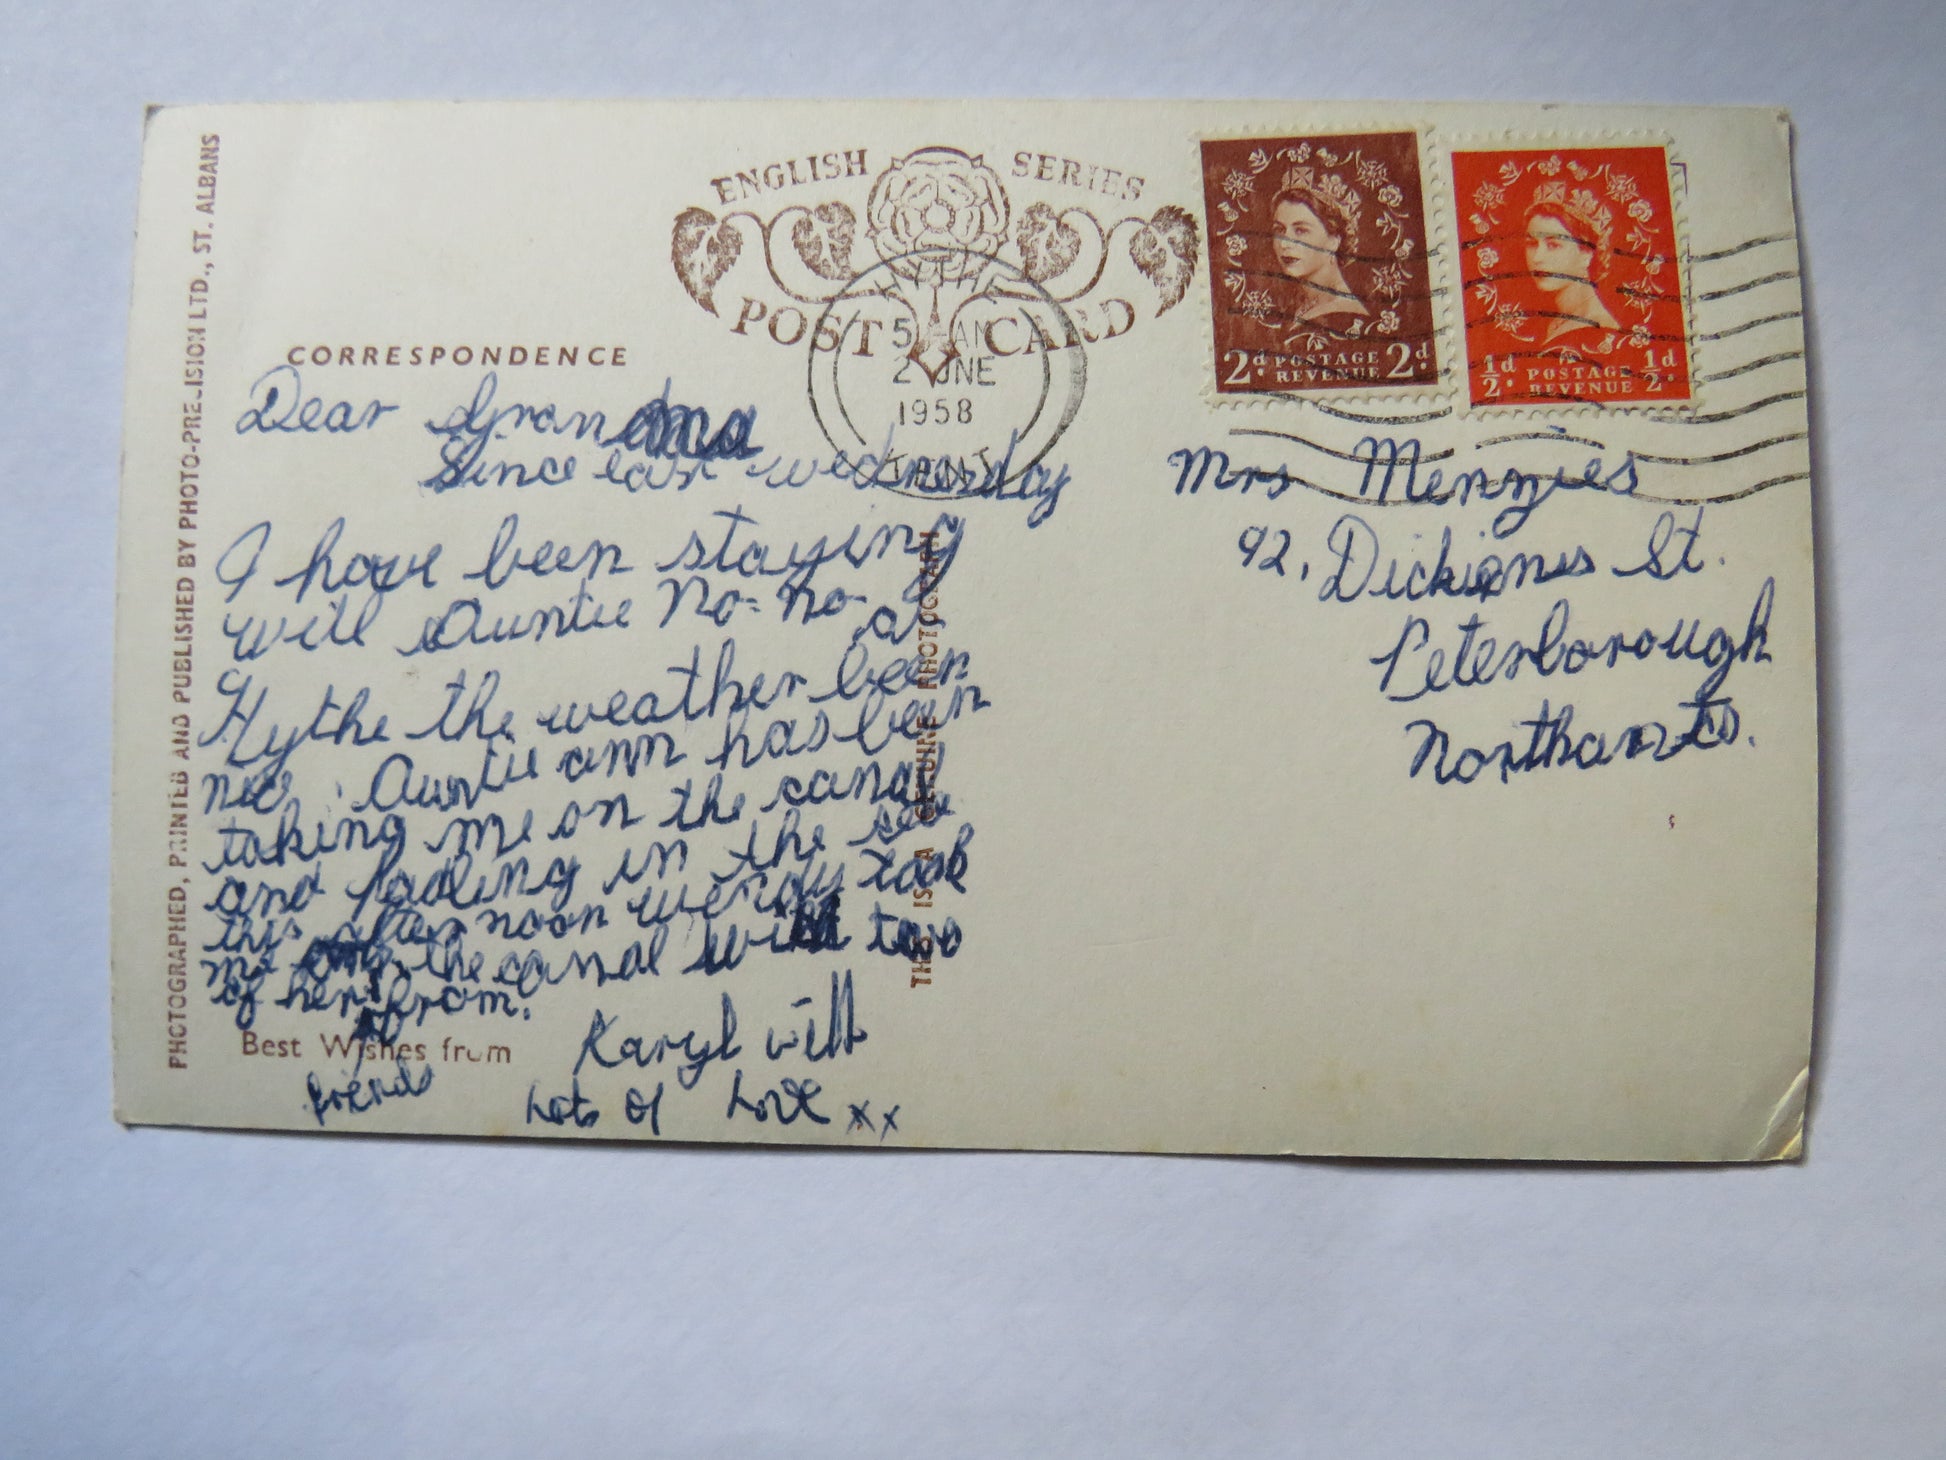 PHOTOGRAPHED, PRINTED AND PUBLISHED BY PHOTO-PRECISION LTD., ST. ALBANS
ENGLISH SERIES
POST CARD
CORRESPONDENCE
HYTHE
5
2 JNE
1958
KENT
2d POSTAGE REVENUE 2d
½d POSTAGE REVENUE ½d
Dear Grandma
Since last wednesday
I have been staying
will Auntie No-no- at
Hythe the weather been
nice. Auntie ann has been
taking me on the canal
and padling in the sea
this after noon wendy took
me on the canal with two
of her from.
friends
Best Wishes from
Karyl will
Lots of Love xx
THIS IS A GENUINE PHOTOGRAPH
Mrs Menzies
92, Dickiens St.
Peterborough
Northants.